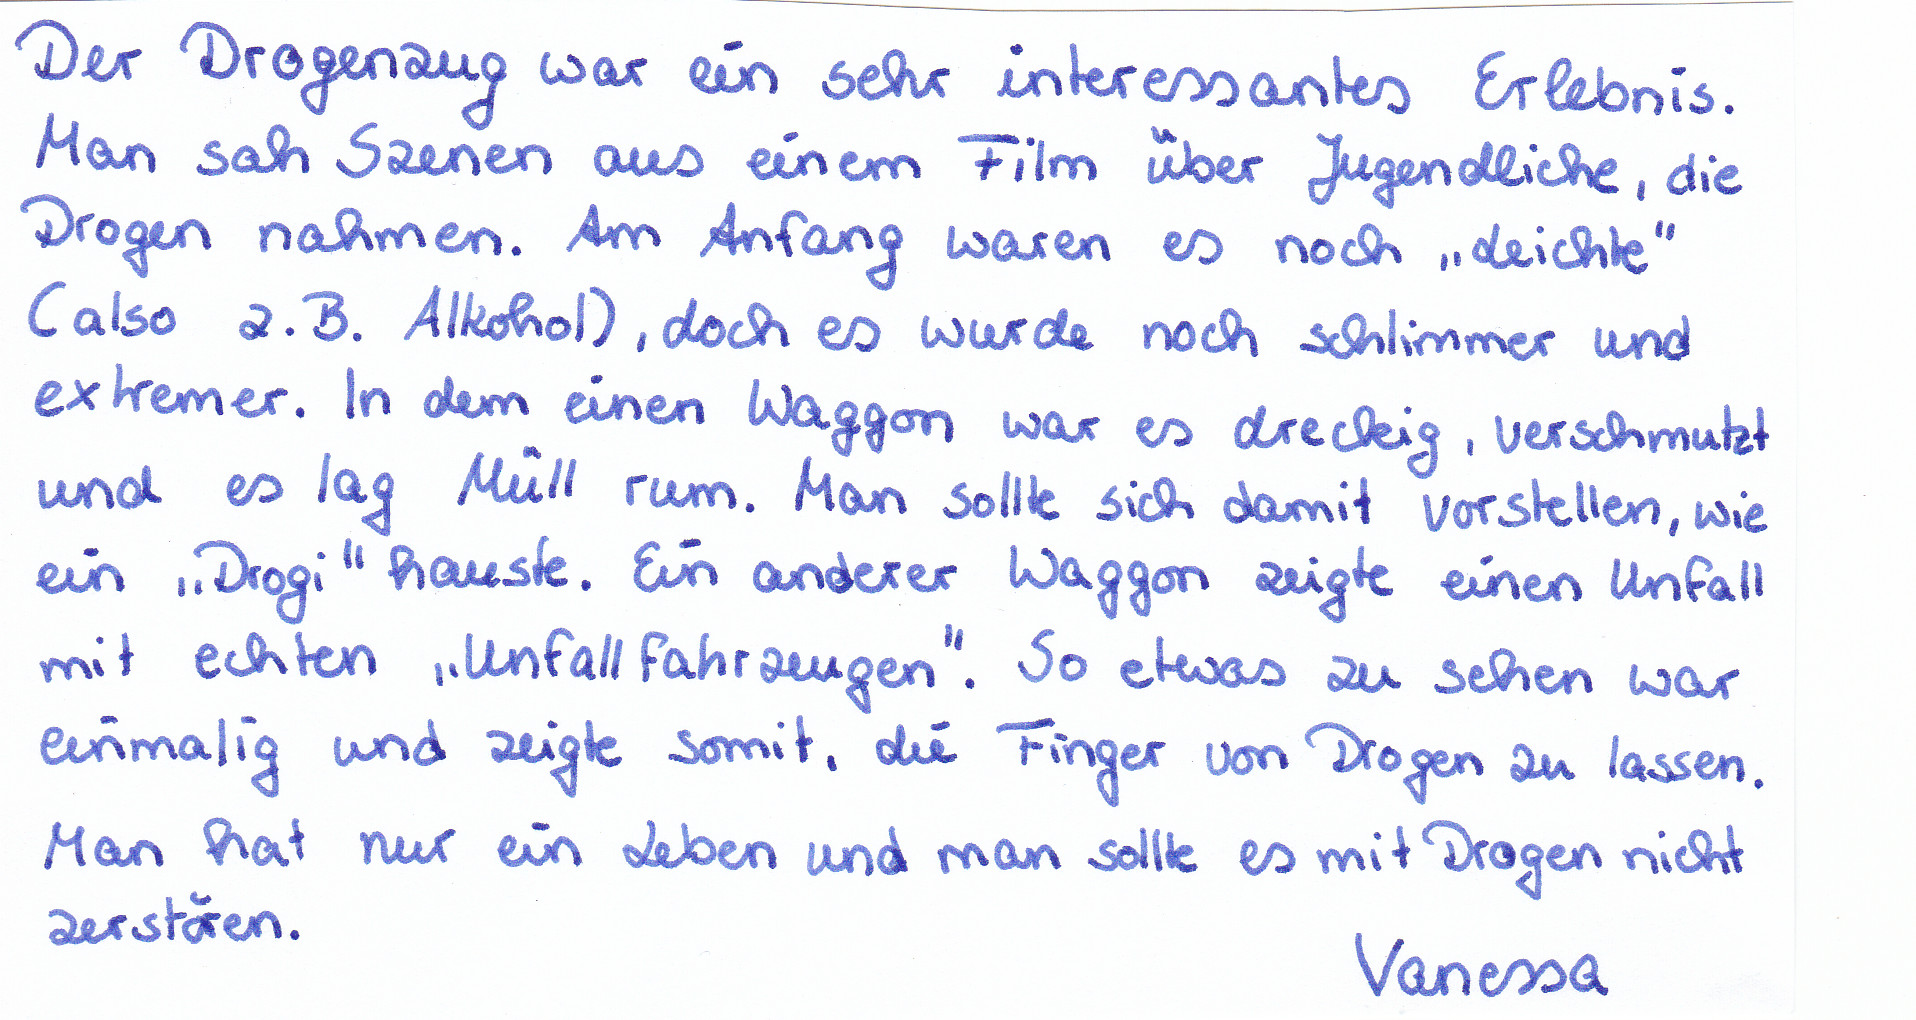 Der Drogenzug war ein sehr interessantes Erlebnis.
Man sah Szenen aus einem Film über Jugendliche, die
Drogen nahmen. Am Anfang waren es noch „leichte"
(also z.B. Alkohol), doch es wurde noch schlimmer und
extremer. In dem einen Waggon war es dreckig, verschmutzt
und es lag Müll rum. Man sollte sich damit vorstellen, wie
ein „Drogi" hauste. Ein anderer Waggon zeigte einen Unfall
mit echten „Unfallfahrzeugen". So etwas zu sehen war
einmalig und zeigte somit, die Finger von Drogen zu lassen.
Man hat nur ein Leben und man sollte es mit Drogen nicht
zerstören.
Vanessa